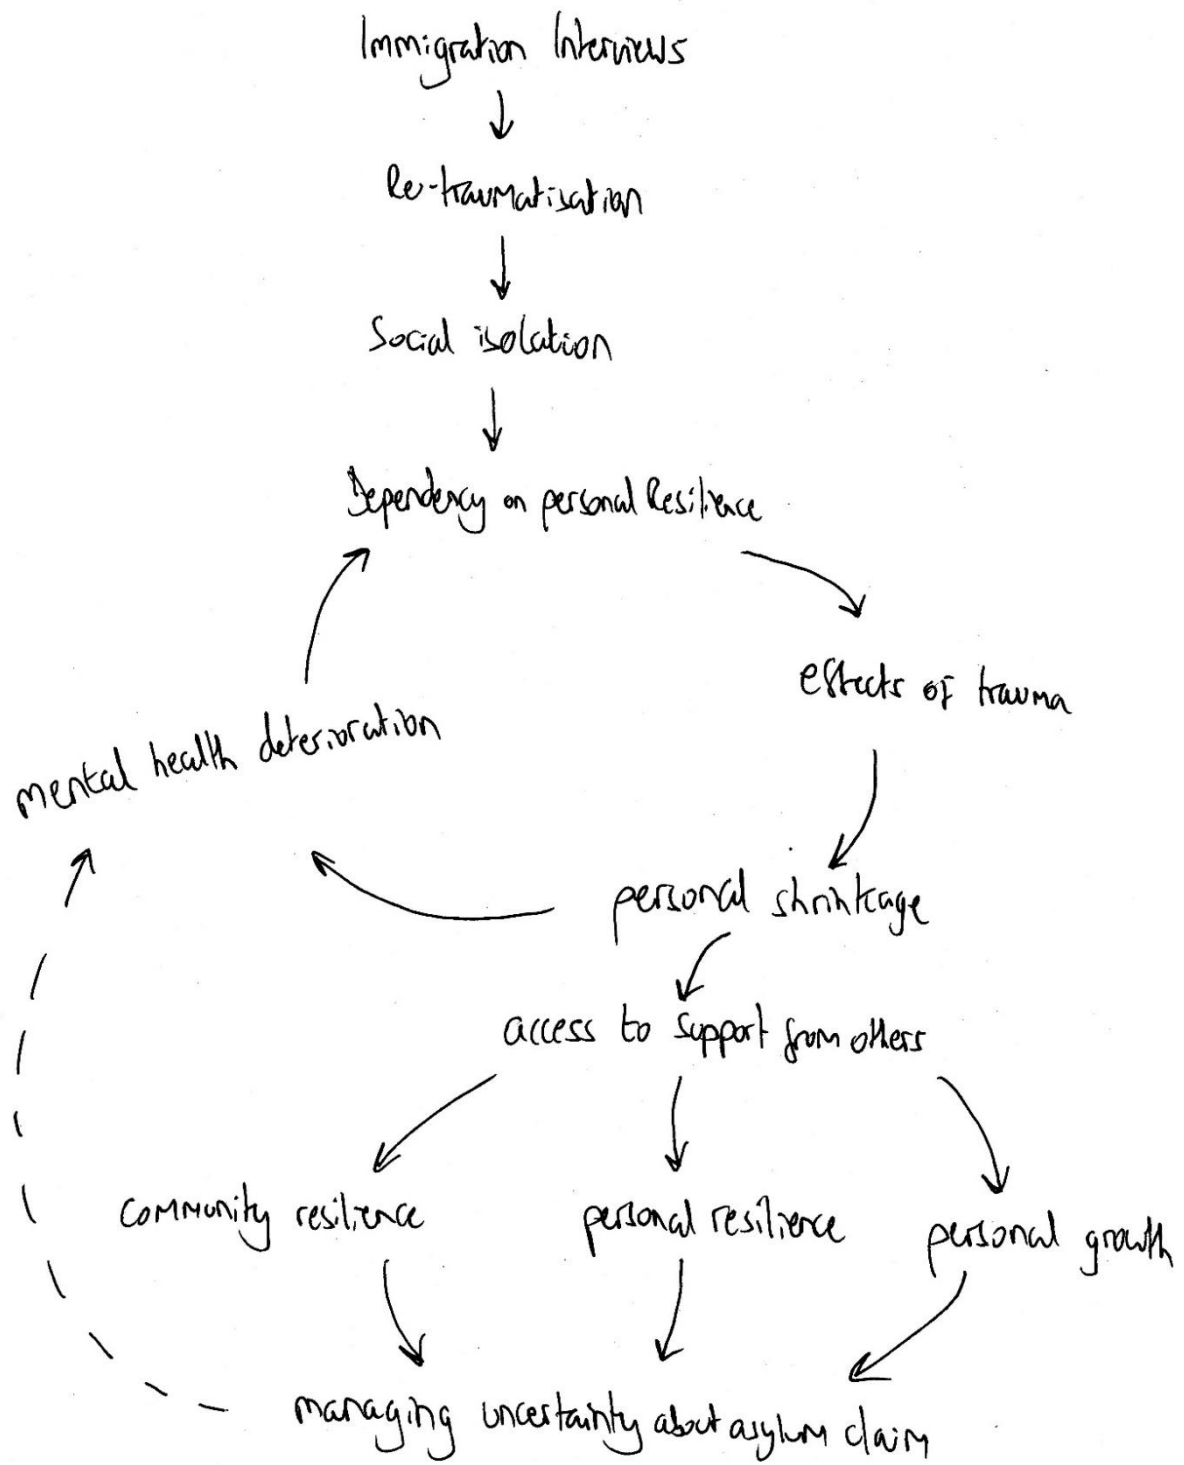 Immigration Interviews
Re-traumatisation
Social isolation
Dependency on personal Resilience
effects of trauma
mental health deterioration
personal shrinkage
access to support from others
community resilience
personal resilience
personal growth
managing uncertainty about asylum claim